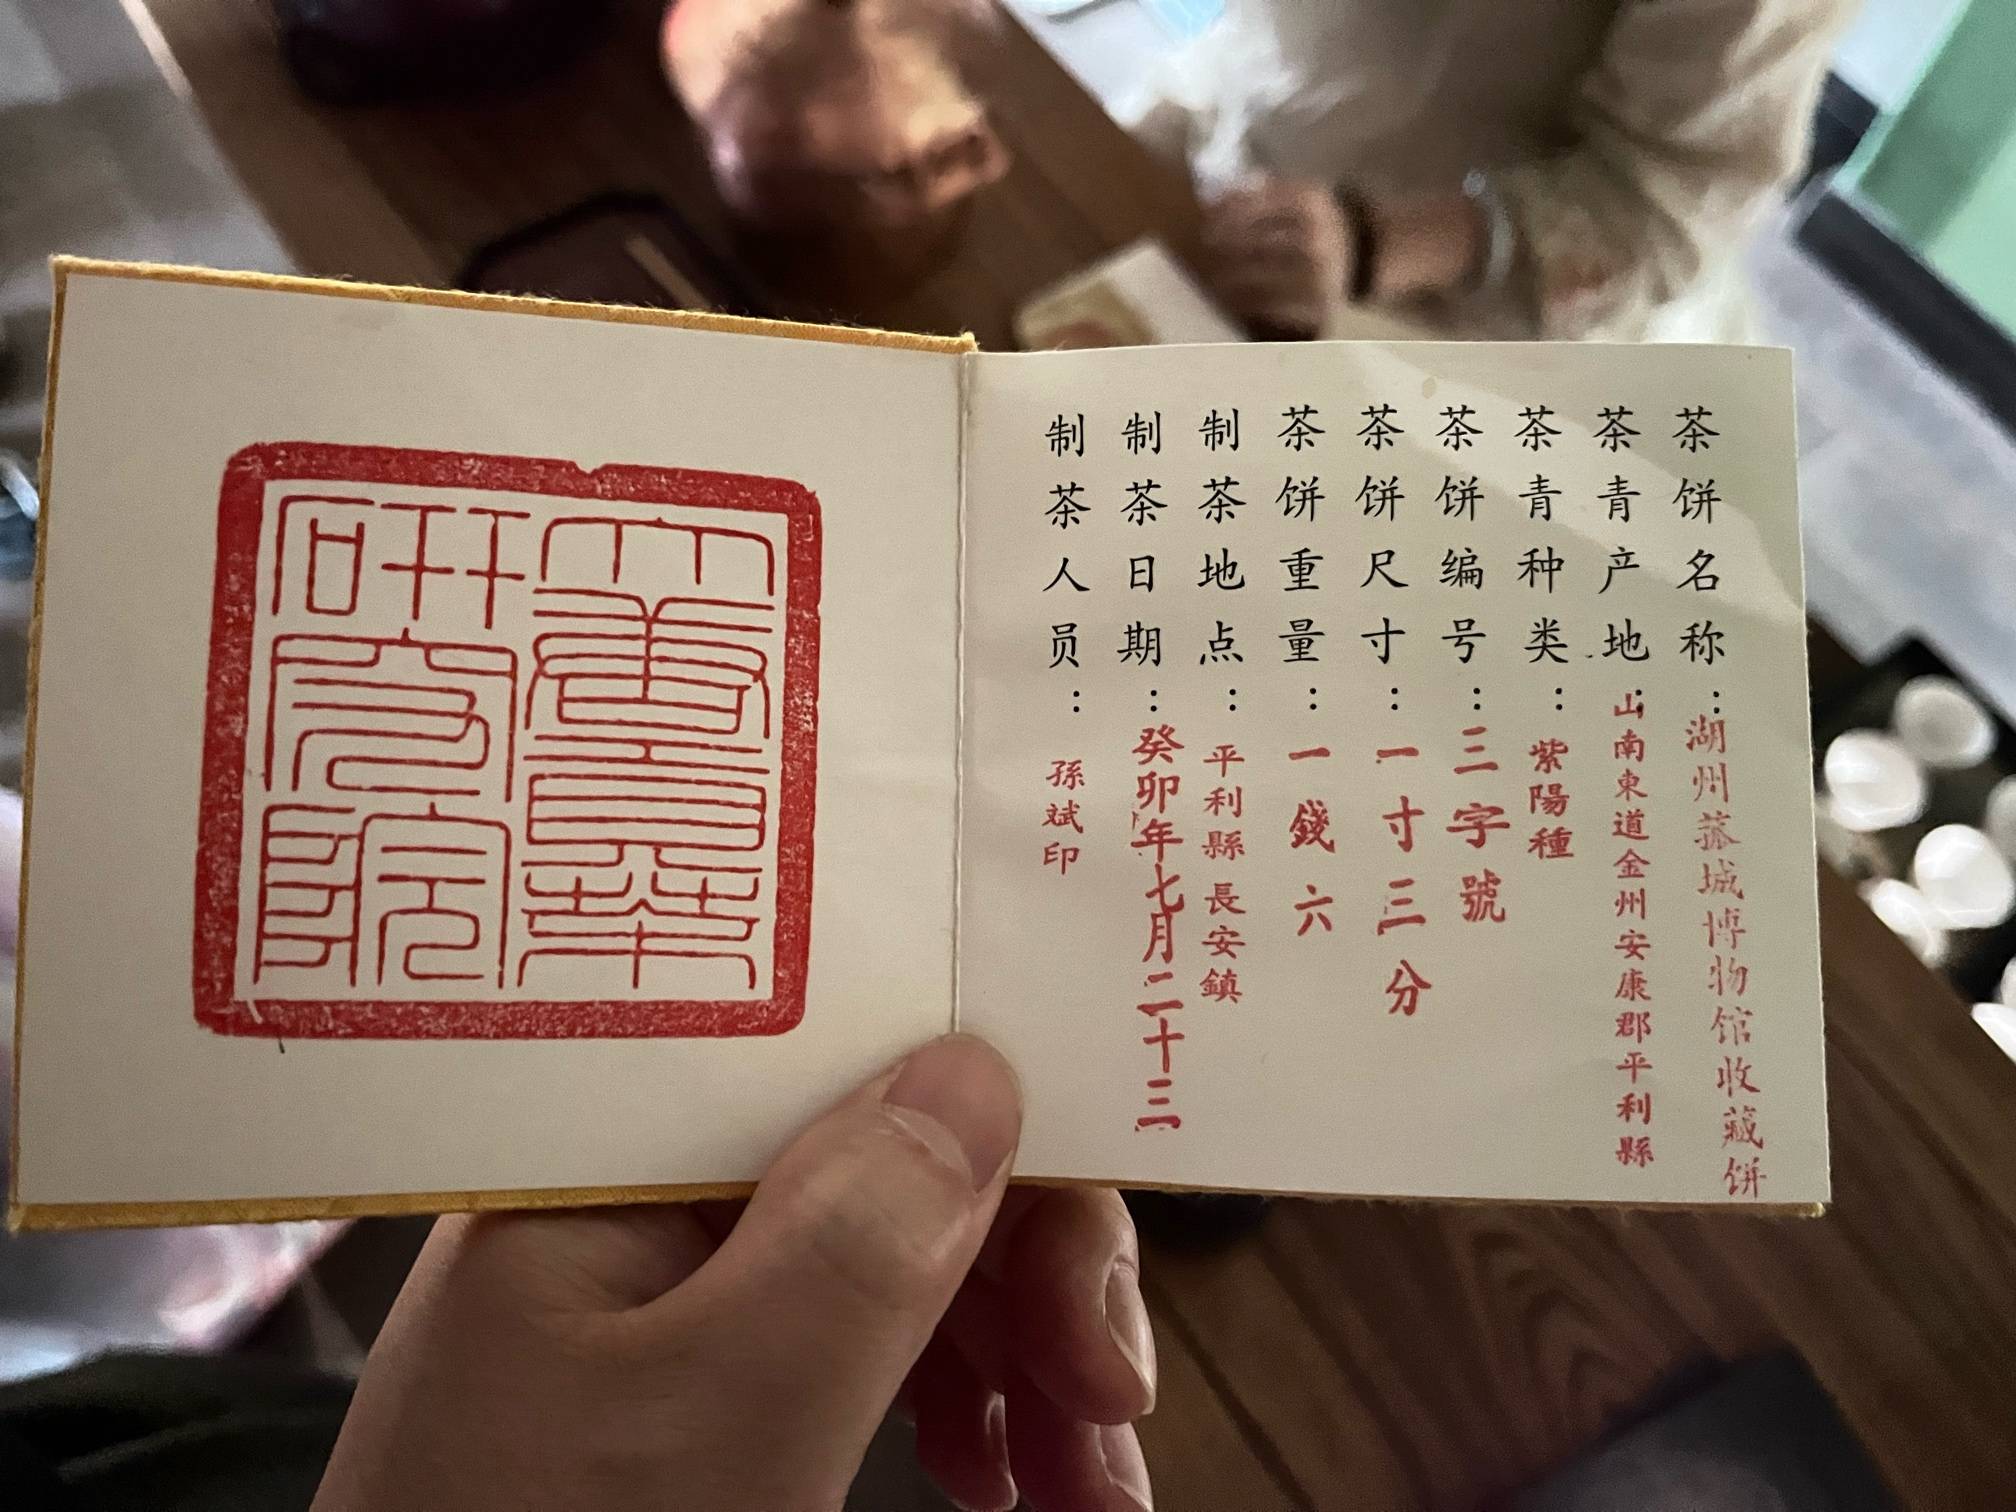 茶饼名称：湖州菰城博物馆收藏饼
茶青产地：山南東道金州安康郡平利縣
茶青种类：紫陽種
茶饼编号：三字號
茶饼尺寸：一寸三分
茶饼重量：一錢六
制茶地点：平利縣 長安鎮
制茶日期：癸卯年七月二十三
制茶人员：孫斌印
研究院